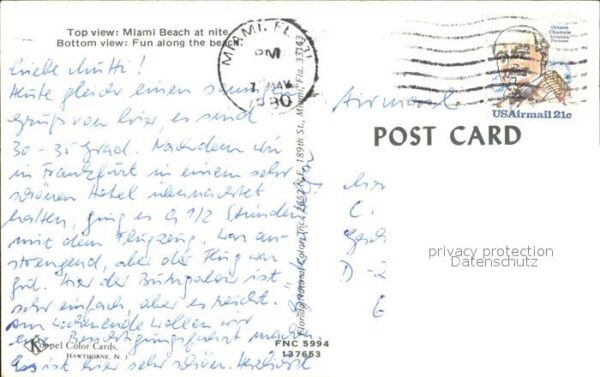 Top view: Miami Beach at nite
Bottom view: Fun along the beach
MIAMI, FL
PM
MAY
1980
Octave Chanute
Aviation Pioneer
USAirmail 21c
Liebe Mutti!
Heute gleich einen sonnigen
Gruß von hier, es sind
30-35 Grad. Nachdem wir
in Frankfurt in einem sehr
schönen Hotel übernachtet
hatten, ging es 9 1/2 Stunden
mit dem Flugzeug. War an-
strengend, aber der Flug war
gut. Hier der Bungalow ist
sehr einfach, aber es reicht.
Am Wochenende wollen wir
eine Besichtigungsfahrt machen.
Es ist hier sehr schön. Herzlichst
Airmail
POST CARD
D-2
privacy protection
Datenschutz
Florida Natural Color, Inc., N.E. 189th St., Miami, Fla. 33143
Koppel Color Cards.
HAWTHORNE, N. J.
FNC 5994
137653